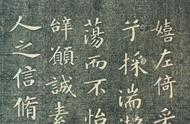 嬉左倚采
兮採湍瀨
蕩而不怡
辭願誠素
人之信脩